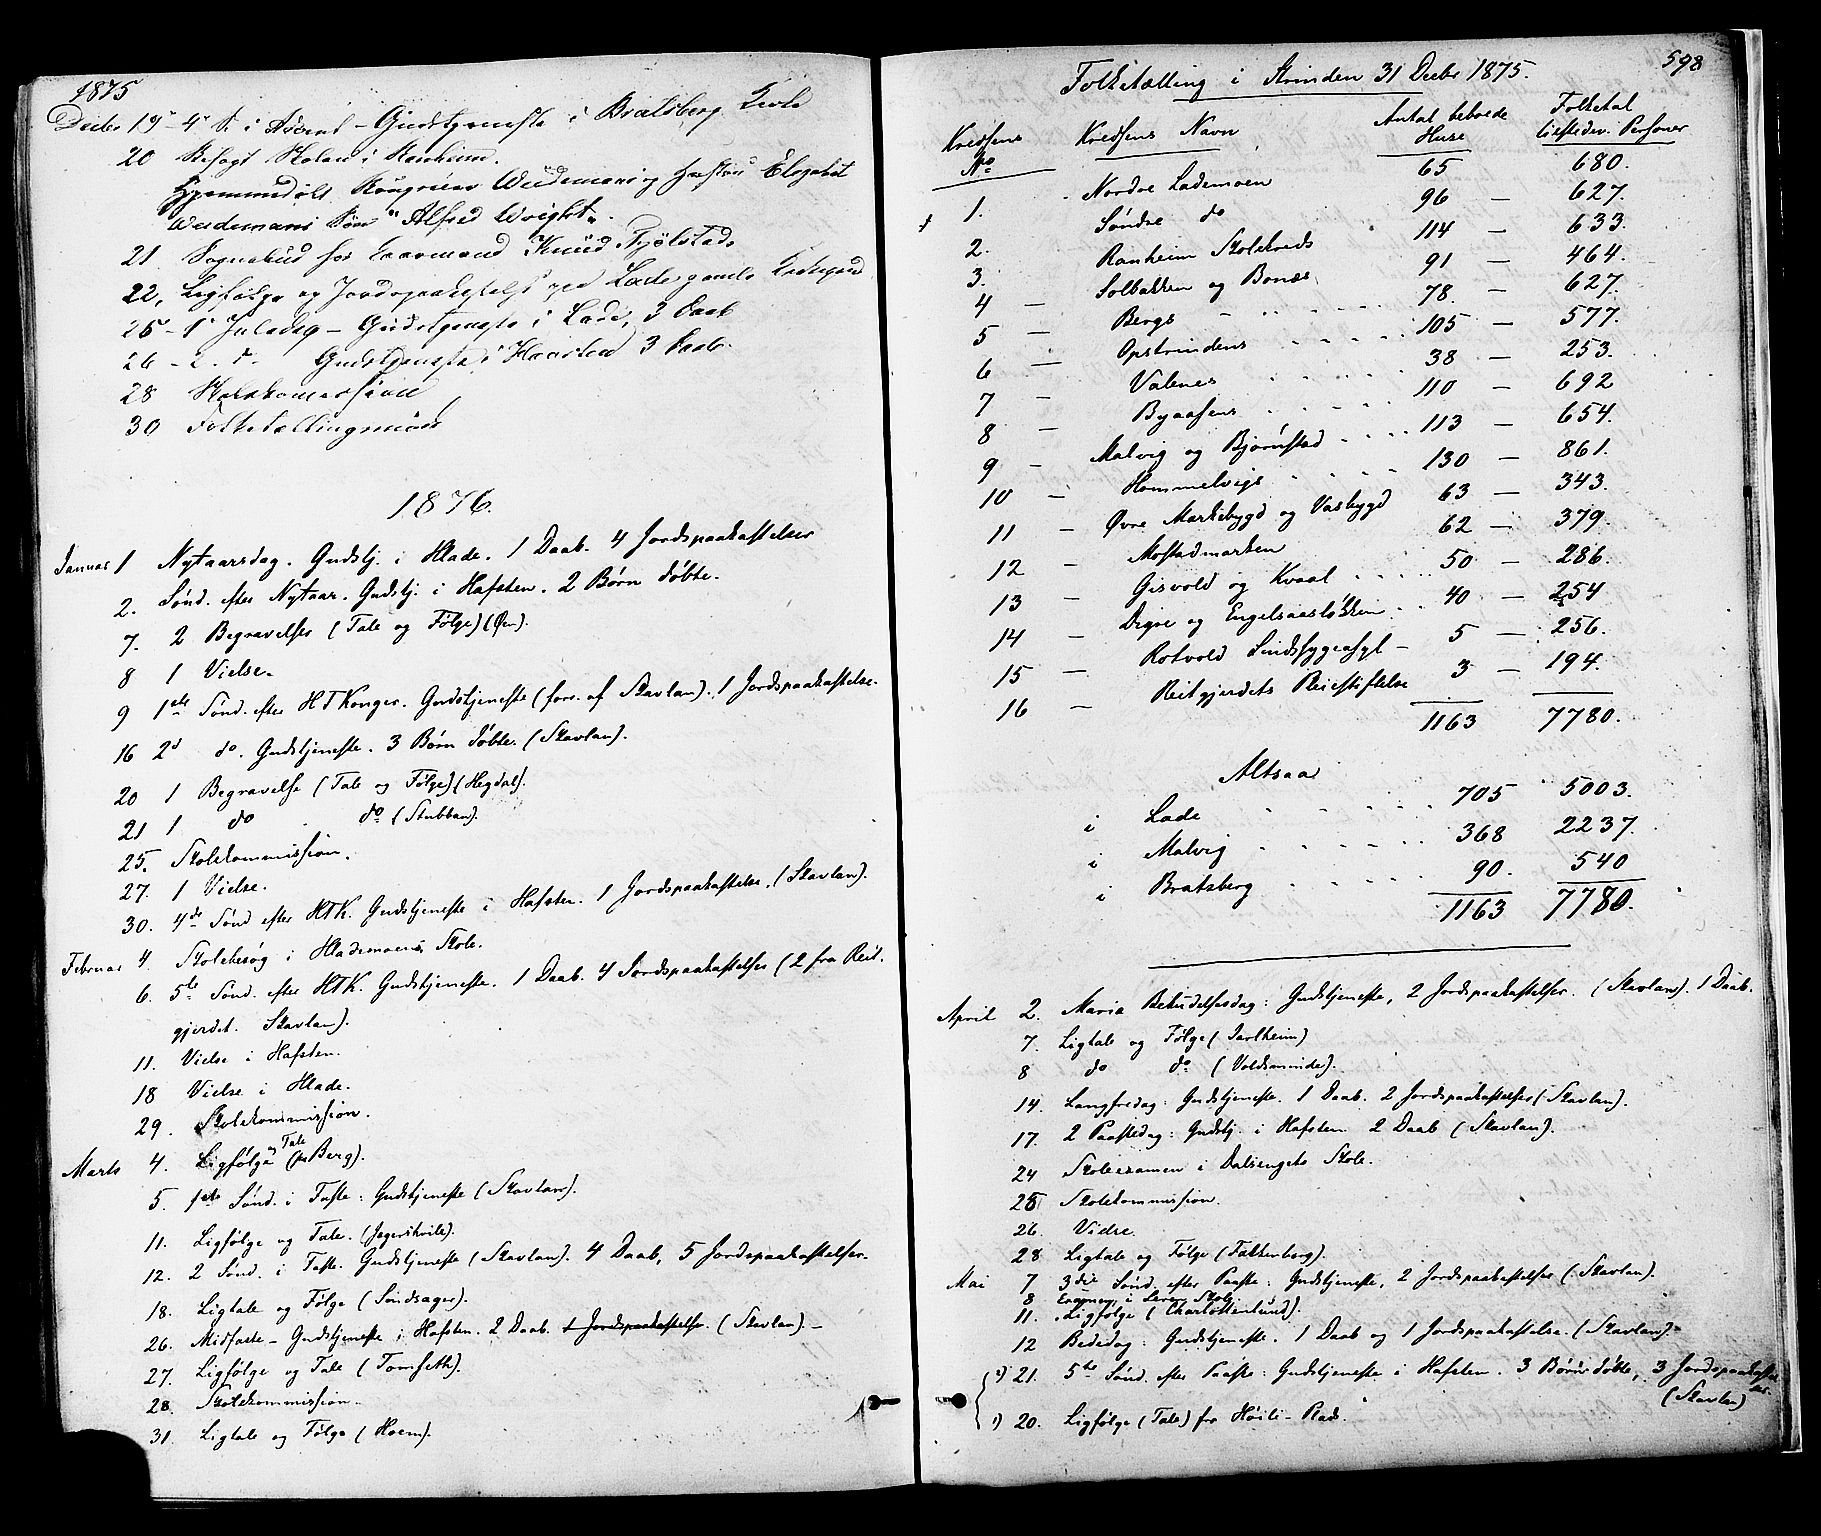 1875
Decbr 19 - 4 S. i Advent - Gudstjeneste i Bratsberg Kirke
20 Besøgt Skolen i Ranheim.
Hjemmedøbt Wiedemans og Hustru Elisabet
Wiedemans Søn "Alfred Wright".
21 Sognebud for Knud Fjølstad.
22, Ligfølge og Jordspaakastelse ved Lade gamle Kirkegaard
25 - 1 Juledag - Gudstjeneste i Lade, 3 Daab
26 - 2. d. Gudstjeneste i Havsten 3 Daab.
28 Skolekommission
30 Folketællingsmøde
1876.
Januar 1 Nytaarsdag. Gudstj. i Hlade. 1 Daab. 4 Jordspaakastelser
2. Sønd. efter Nytaar. Gudstj. i Hafsten. 2 Børn døbte.
7. 2 Begravelser (Tale og Følge) (Øen).
8 1 Vielse.
9 1ste Sønd. efter HTKonger. Gudstjeneste (forr. af Skavlan). 1 Jordspaakastelse.
16 2d do. Gudstjeneste. 3 Børn døbte. (Skavlan).
20 1 Begravelse (Tale og Følge) (Hegdal).
21 1 do do (Stubban).
25. Skolekommission.
27. 1 Vielse.
30. 4de Sønd efter HTK. Gudstjeneste i Hafsten. 1 Jordspaakastelse. (Skavlan).
Februar 4. Skolebesøg i Hlademoens Skole.
6. 5te Sønd. efter HTK. Gudstjeneste. 1 Daab. 4 Jordspaakastelser (2 fra Reit-
gjerdet. Skavlan).
11. Vielse i Hafsten.
18 Vielse i Hlade.
29. Skolekommission.
Marts 4. Ligfølge og Tale (paa Berg).
5. 1ste Sønd. i Faste: Gudstjeneste (Skavlan).
11. Ligfølge og Tale. (Jegershvile).
12. 2 Sønd. i Faste. Gudstjeneste (Skavlan). 4 Daab, 5 Jordspaakastelser.
18. Ligtale og Følge (Sundsager).
26. Midfaste - Gudstjeneste i Hafsten. 2 Daab. 1 Jordspaakastelse. (Skavlan). -
27. Ligfølge og Tale (Tomseth).
28. Skolekommission.
31. Ligtale og Følge (Hoem).
598
Folketælling i Strinden 31 Decbr 1875.
Kredsens No Kredsens Navn Antal beboede Huse Folketal tilstedev. Personer
1. Nordre Lademoen 65 680.
2. Søndre do 96 - 627.
3. Ranheim Skolekreds 114 - 633.
4 - Solbakken og Bonæs 91 - 464.
5 - Bergs 78. - 627.
6 - Opstrindens 105 - 577.
7 - Valenes 38 - 253.
8 - Byaasens 110 - 692
9 - Malvig og Bjørnstad 113 - 654.
10 - Hommelvigs 130 - 861.
11 - Øvre Markebygd og Vasbygd 63 - 343.
12 - Mostadmarken 62 - 379.
13 - Gisvold og Kvaal 50 - 286.
14 - Digre og Engelsaasløkken 40 - 254
15 - Rotvold Sindssygeasyl - 5 - 256.
16 - Reitgjerdets Pleiestiftelse 3 - 194.
1163 7780.
Altsaa
i Lade 705 5003.
i Malvig 368 2237.
i Bratsberg 90. 540
1163 7780.
April 2. Maria Bebudelsesdag: Gudstjeneste, 2 Jordspaakastelser. (Skavlan). 1 Daab.
7. Ligtale og Følge (Jarlheim)
8 do do (Voldsminde).
14. Langfredag: Gudstjeneste. 1 Daab. 2 Jordspaakastelser (Skavlan).
17. 2 Paaskedag: Gudstj. i Hafsten 2 Daab (Skavlan).
24 Skoleexamen i Dalsengets Skole.
25 Skolekommission.
26. Vielse.
28 Ligtale og Følge (Falkenborg).
Mai 7 3die Sønd. efter Paaske: Gudstjeneste, 2 Jordspaakastelser (Skavlan).
8 Examen i Leren Skole.
11. Ligfølge (Charlottenlund).
12 Bededag: Gudstjeneste. 1 Daab og 1 Jordspaakastelse. (Skavlan).
2) 21. 5te Sønd. efter Paaske: Gudstjeneste i Hafsten. 3 Børn døbte, 3 Jordspaakastelser.
(Skavlan)
1) 20. Ligfølge (Tale) fra Høili-Plads.